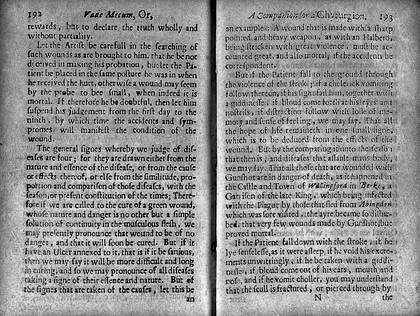 192 Vade Mecum, Or,
rewards, but to declare the truth wholly and
without partiality.
Let the Artist be carefull in the searching of
such wounds as are brought to him, that he be not
deceived in making his probation; but let the Pa-
tient be placed in the same posture he was in when
he received the hurt, otherwise a wound may seem
by the probe to be small, when indeed it is
mortal. If therefore he be doubtful, then let him
suspend his judgement from the first day to the
ninth, by which time the accidents and sym-
ptomes will manifest the condition of the
wound.
The general signs whereby we judge of dis-
eases are four; for they are drawn either from the
nature and essence of the disease, or from the cause
or effects thereof, or else from the similitude, pro-
portion and comparison of those diseases, with the
season, or present constitution of the times, There-
fore if we are called to the cure of a green wound,
whose nature and danger is no other but a simple
solution of continuity in the musculous flesh, we
may presently pronounce that wound to be of no
danger, and that it will soon be cured. But if it
have an Ulcer annexed to it, that is if it be sanious,
then we may say it will be more difficult and long
in curing, and so we may pronounce of all diseases
taking a signe of their essence and nature. But of
the signes that are taken of the causes, let this be
an
A Companion for a Chyrurgion, 193
an example: A wound that is made with a sharp
pointed and heavy weapon, as with an Halberd,
being stricken with great violence, must be ac-
counted great, and also mortal, if the accidents be
correspondent.
But if the Patient fall to the ground through
the violence of the
follow thereon, if his sight
a giddinesse, if blood come forth at his eyes and
nostrils, if distraction follow with losse of me-
mory and sense of feeling, we may say, that all
the hope of life remaineth in one small signe,
which is to be deduced from the effects of the
wound. But by the comparing it unto the season
that then is, and diseases that assault mans body,
we may say, That all those that are wounded with
Gunshot are in danger of death, as it happened in
the Castle and Town of Wallingford in Berks, a
Garison of the late King, which being infected
with the Plague by those that fled from Abingdon
which was sore visited, the ayre became so distur-
bed, that very few wounds made by Gunshot, but
proved mortal.
If the Patient fall down with the stroke, if he
lye senselesse, as it were asleep, if he void his excre-
ments unwittingly, if he be taken with a giddi-
nesse, if blood come out of his ears, mouth and
nose, and if he vomit choller, you may understand
that the scull is fractured, or pierced through by
N the